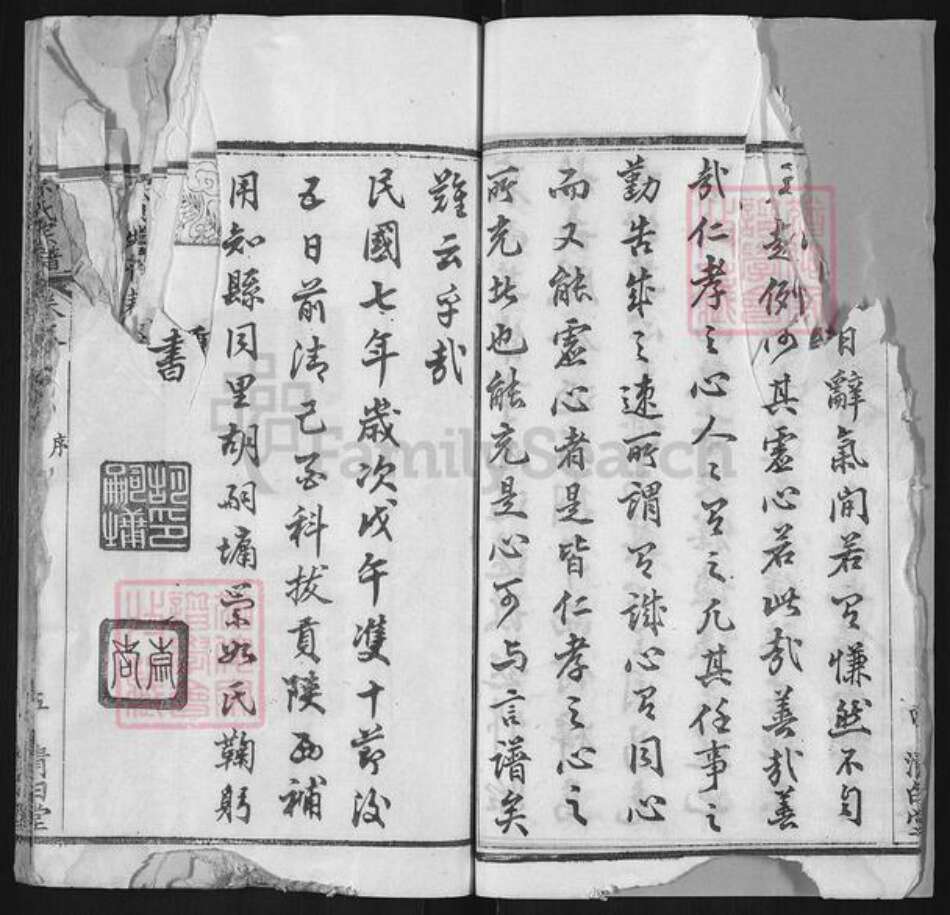 自辭氣間若有慊然不自
是 起例何其虛心若此哉善哉善
哉仁孝之心人之有之凡其任事之
勤告成之速所謂有誠心有同心
而又能虛心者是皆仁孝之心之
所充此也能充是心可与言譜矣
難云乎哉
民國七年歲次戊午雙十節後
五日前清己酉科拔貢陝西補
用知縣同里胡嗣墉榮如氏鞠躬
書
胡嗣墉印
序
五 清白堂
FamilySearch